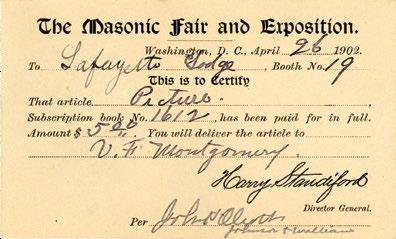 The Masonic Fair and Exposition.
Washington, D. C., April 26 1902.
To Lafayette Lodge, Booth No. 19
This is to Certify
That article Picture.
Subscription book No. 1612, has been paid for in full.
Amount $5 00/ You will deliver the article to
V. F. Montgomery.
Harry Standiford
Director General.
Per